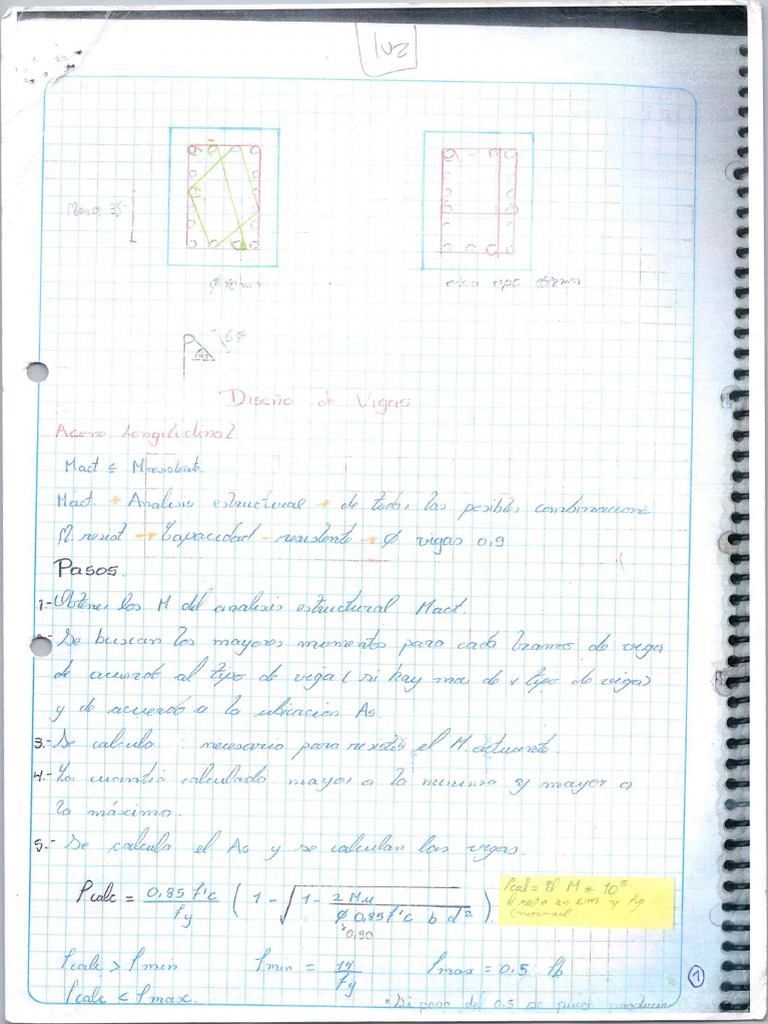 Diseño de Vigas
Acero Longitudinal.
Mact ≤ Mresistente.
Mact. → Analisis estructural → de todas las posibles combinacione
M resist → Capacidad - resistente → φ vigas 0,9
Pasos.
1.- Obtener los M del analisis estructural Mact.
Se buscan los mayores momentos para cada tramo de viga
de acuerdo al tipo de viga ( si hay mas de 1 tipo de vigas)
y de acuerdo a la ubicacion As.
3.- Se calcula necesario para resistir el M. actuante.
4.- La cuantia calculada mayor a la minima y mayor a
la máxima.
5.- Se calcula el As y se calculan las vigas.
ρcalc = 0,85 f'c / fy ( 1 - √ 1 - 2 Mu / φ 0,85 f'c b d² )
0,90
ρcal = El M * 10⁵
El resto en cm y kg
(normal.
ρcalc > ρmin ρmin = 14 / fy ρmax = 0.5 ρb
ρcalc < ρmax.
1
• Si pasa del 0.5 se puede producir